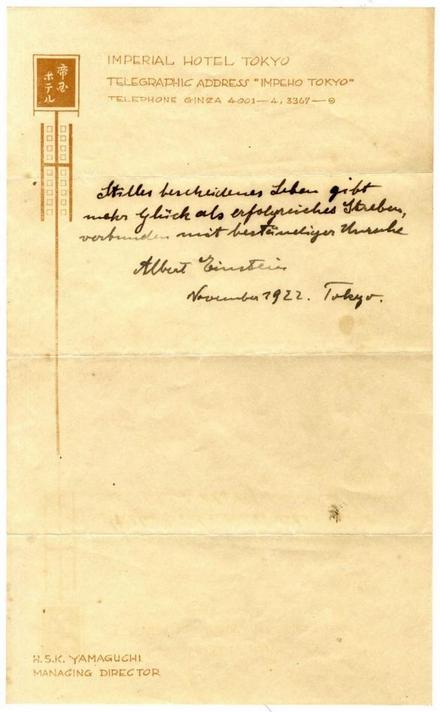 IMPERIAL HOTEL TOKYO
TELEGRAPHIC ADDRESS "IMPEHO TOKYO"
TELEPHONE GINZA 4001—4, 3367—9
帝国
ホテル
Stilles bescheidenes Leben gibt
mehr Glück als erfolgreiches Streben,
verbunden mit beständiger Unruhe
Albert Einstein
November 1922. Tokyo.
H.S.K. YAMAGUCHI
MANAGING DIRECTOR